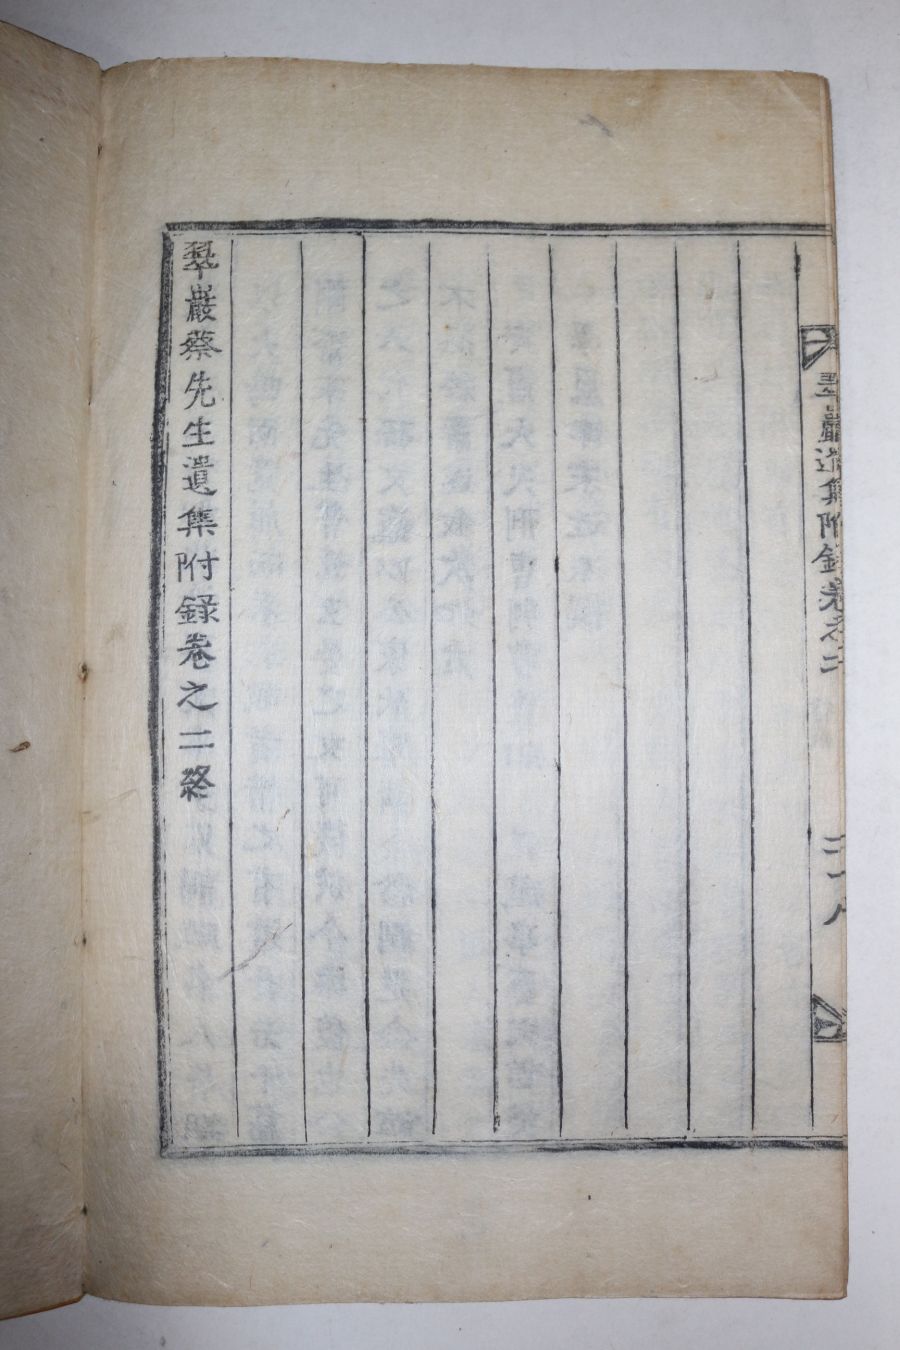 翠巖遺集附錄卷之二
二十八
翠巖蔡先生遺集附録卷之二終